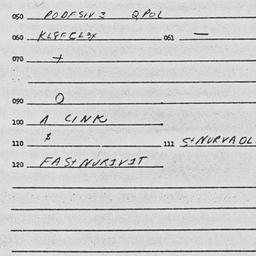 050 PODFSIV3 QPOL
060 KL8FCL3X 061 —
070 +
090 O
100 A LINK
110 $ 111 S+NURVAOL
120 FAS+NURIVIT